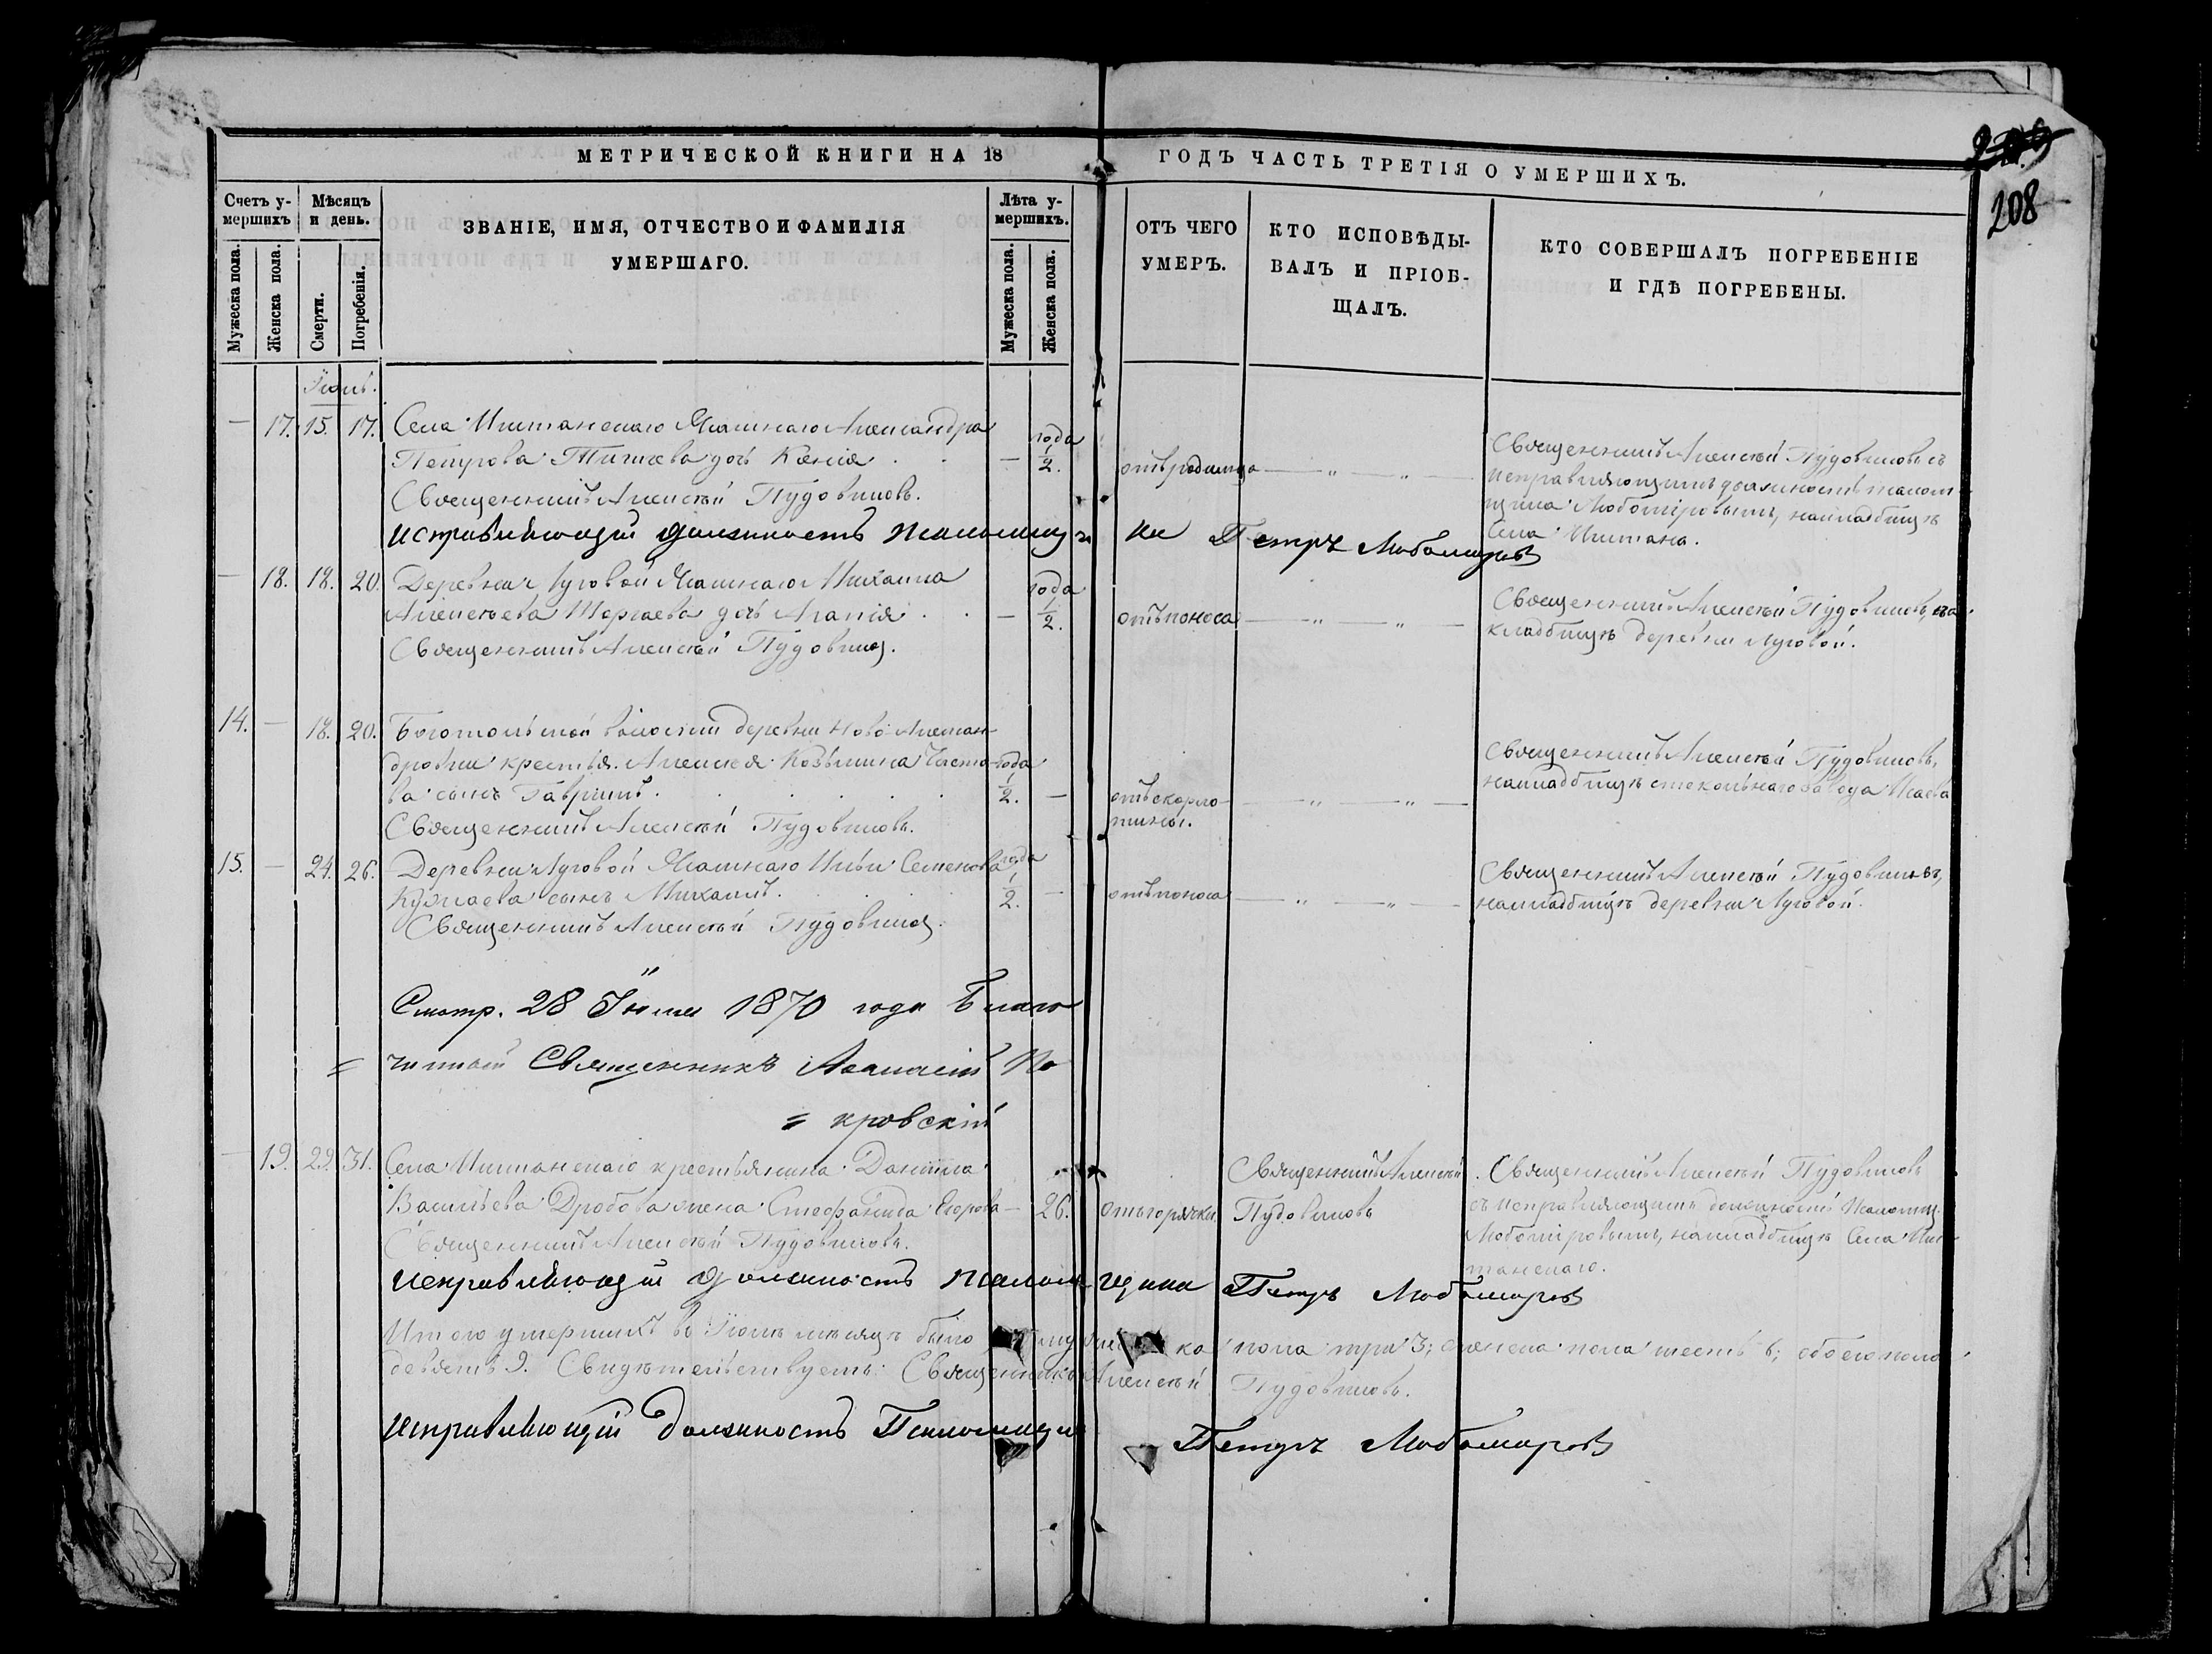 МЕТРИЧЕСКОЙ КНИГИ НА 18
ГОДЪ ЧАСТЬ ТРЕТІЯ О УМЕРШИХЪ.
208
Счетъ у-
мершихъ
Мужеска пола.
Женска пола.
Мѣсяцъ
и день.
Смерти.
Погребенія.
ЗВАНІЕ, ИМЯ, ОТЧЕСТВО И ФАМИЛІЯ
УМЕРШАГО.
Лѣта у-
мершихъ.
Мужеска пола.
Женска пола.
ОТЪ ЧЕГО
УМЕРЪ.
КТО ИСПОВѢДЫ-
ВАЛЪ И ПРІОБ-
ЩАЛЪ.
КТО СОВЕРШАЛЪ ПОГРЕБЕНІЕ
И ГДѢ ПОГРЕБЕНЫ.
— 17. 15. 17. Села Ишtанскаго Ясашнаго Александра
Петрова дочь Ксенія
— года 1/2. отъ родимца — „ — „ —
Священникъ Алексѣй Пудовиковъ.
Священникъ Алексѣй Пудовиковъ съ
исправляющимъ должность псалом-
щика Любомировымъ, на кладбищѣ
Села Иштана.
исправляющій должность псаломщика Петръ Любомировъ
— 18. 18. 20. Деревни Луговой Ясашнаго Михаила
Алексѣева дочь Агапія
— года 1/2. отъ поноса — „ — „ —
Священникъ Алексѣй Пудовиковъ.
Священникъ Алексѣй Пудовиковъ, на
кладбищѣ деревни Луговой.
14. — 18. 20. Боготольской волости деревни Ново-Алексан-
дровки крестья. Алексея Козьмина Чисто-
ва сынъ Гавріилъ.
года 1/2. — отъ скарла-
тины. — „ — „ —
Священникъ Алексѣй Пудовиковъ.
Священникъ Алексѣй Пудовиковъ,
на кладбищѣ стекольнаго завода Исаева
15. — 24. 26. Деревни Луговой Ясашнаго Ильи Семенова
сынъ Михаилъ.
года 1/2. — отъ поноса — „ — „ —
Священникъ Алексѣй Пудовиковъ.
Священникъ Алексѣй Пудовиковъ,
на кладбищѣ деревни Луговой.
Смотр. 28 Іюля 1870 года Благо
= чинный Священникъ По
= кровскій
— 19. 29. 31. Села Иштанскаго крестьянина Даніила
Васильева Дробова жена Стефанида Егорова
— 26. отъ горячки.
Священникъ Алексѣй
Пудовиковъ
Священникъ Алексѣй Пудовиковъ.
Священникъ Алексѣй Пудовиковъ
съ исправляющимъ должность Псаломщ.
Любомировымъ, на кладбищѣ Села Иш-
танскаго.
исправляющій должность псаломщика Петръ Любомировъ
Итого умершихъ въ мѣсяцѣ было ка пола три 3; женска пола шесть 6; обоего пола
девять 9. Свидѣтельствуетъ: Священникъ Алексѣй Пудовиковъ.
исправляющій должность Псаломщика Петръ Любомировъ